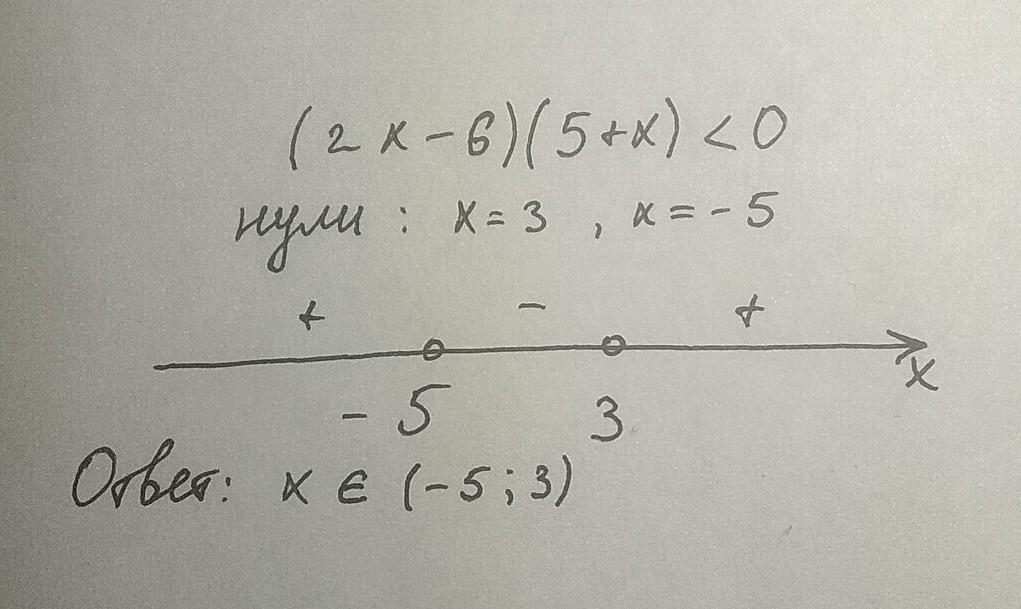 (2x-6)(5+x)<0
нули: x=3, x=-5
+ - +
-5 3 x
Ответ: x ∈ (-5;3)